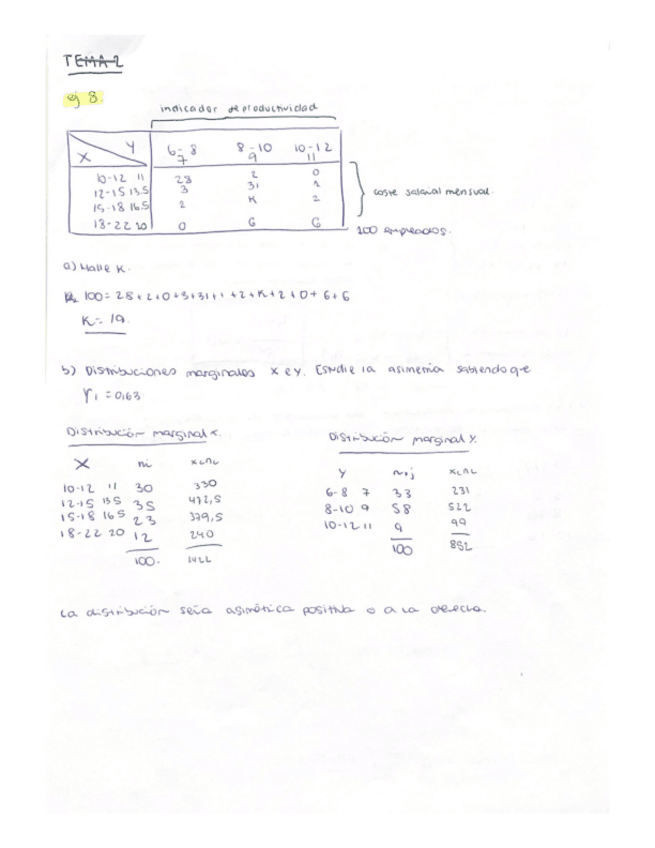 TEMA 2
ej 8.
indicador de productividad
X Y 6-8 8-10 10-12
7 9 11
10-12 11 28 2 0
12-15 13.5 3 31 1
15-18 16.5 2 K 2
18-22 20 0 6 6
coste salarial mensual.
100 empleados.
a) Halle K.
100 = 28+2+0+3+31+1+2+K+2+0+6+6
K = 19.
b) Distribuciones marginales X e Y. Estudie la asimetria sabiendo que
γ1 = 0,63
Distribución marginal x.
X ni xini
10-12 11 30 330
12-15 13.5 35 472,5
15-18 16.5 23 379,5
18-22 20 12 240
100. 1422
Distribución marginal y.
y n.j xini
6-8 7 33 231
8-10 9 58 522
10-12 11 9 99
100 852
La distribución sería asimétrica positiva o a la derecha.